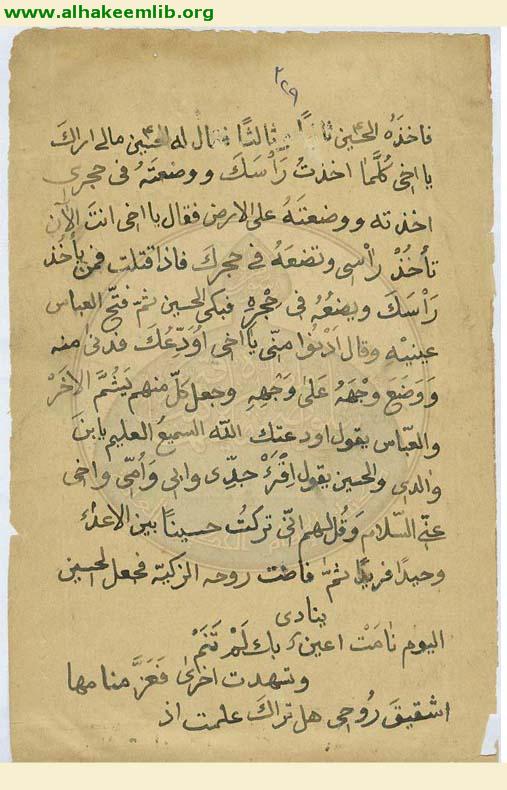 www.alhakeemlib.org
٢٢٩
فاخذَهُ الحسين ثانيًا وثالثًا فقال له الحسين مالى اراك
يا اخى كُلَّما اخذتُ رَأسَكَ ووضعتَهُ فى حجرى
اخذته ووضعتَهُ على الارض فقال يا اخى انتَ الآن
تأخُذُ رأسى وتضعَهُ فى حجرك فاذا قتلت فمن يأخذ
رَأسَكَ ويضعُهُ فى حِجْرِهِ فبكى الحسين ثمّ فتح العباس
عينيه وقال اُدْنُوا مِنّى يا اخى اُوَدِّعُكَ فدنى منه
وَوَضَعَ وجْهَهُ عَلىٰ وَجْهِهِ وجعل كلّ منهم يَشُمّ الآخَرْ
والعبّاس يقول اودعتك اللّه السميعُ العليم يابنَ
والدى والحسين يقول اِقْرَءْ جدّى وابى وَاُمّى واخى
عنّى السّلام وَقُل لهم انّى تركتُ حسينًا بين الاعدٰاء
وحيدًا فريدًا ثمّ فاضت روحه الزكيّة فجعل الحسين
ينادى
اليوم نامَتْ اعين بك لَمْ تَنَمْ
وتسهدت اخرىٰ فَعَزَّ منامها
اشقيقَ رُوحى هل تراكَ علمت اذ